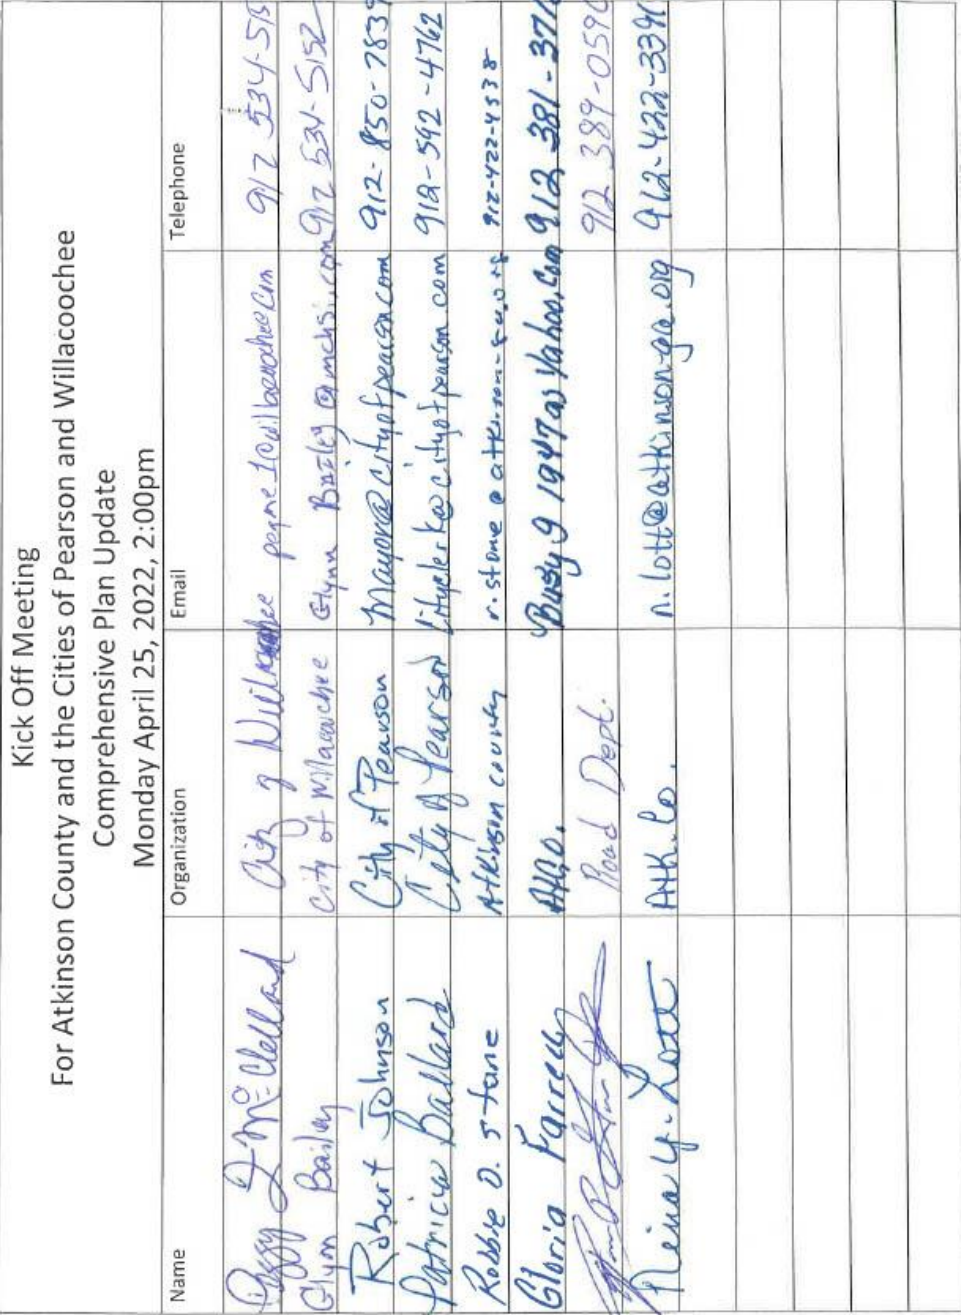 Kick Off Meeting
For Atkinson County and the Cities of Pearson and Willacoochee
Comprehensive Plan Update
Monday April 25, 2022, 2:00pm
Name Organization Email Telephone
Peggy J McClelland City of 912 534-
Glynn Bailey City of Willacoochee Glynn Bailey @ mchsi.com 912 534-5152
Robert Johnson City of Pearson Mayor@cityofpearson.com 912-850-7839
Patricia Ballard City of Pearson cityclerk@cityofpearson.com 912-592-4762
Robbie D. Stone Atkinson County r.stone@atkinson-ga.org 912-422-4538
Gloria Farrell 912 381-
Road Dept. 912 389-0590
Nina Y. Lott Atk. Co. n.lott@atkinson-ga.org 912-422-3391